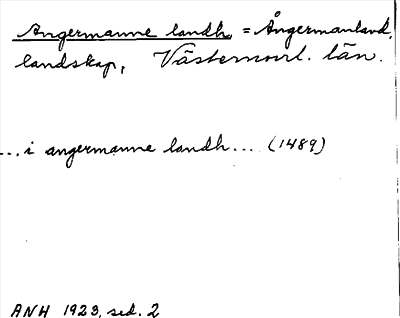 Angermanne landh = Ångermanland,
landskap, Västernorrl. län.
...i angermanne landh... (1489)
ANH 1923, sid. 2